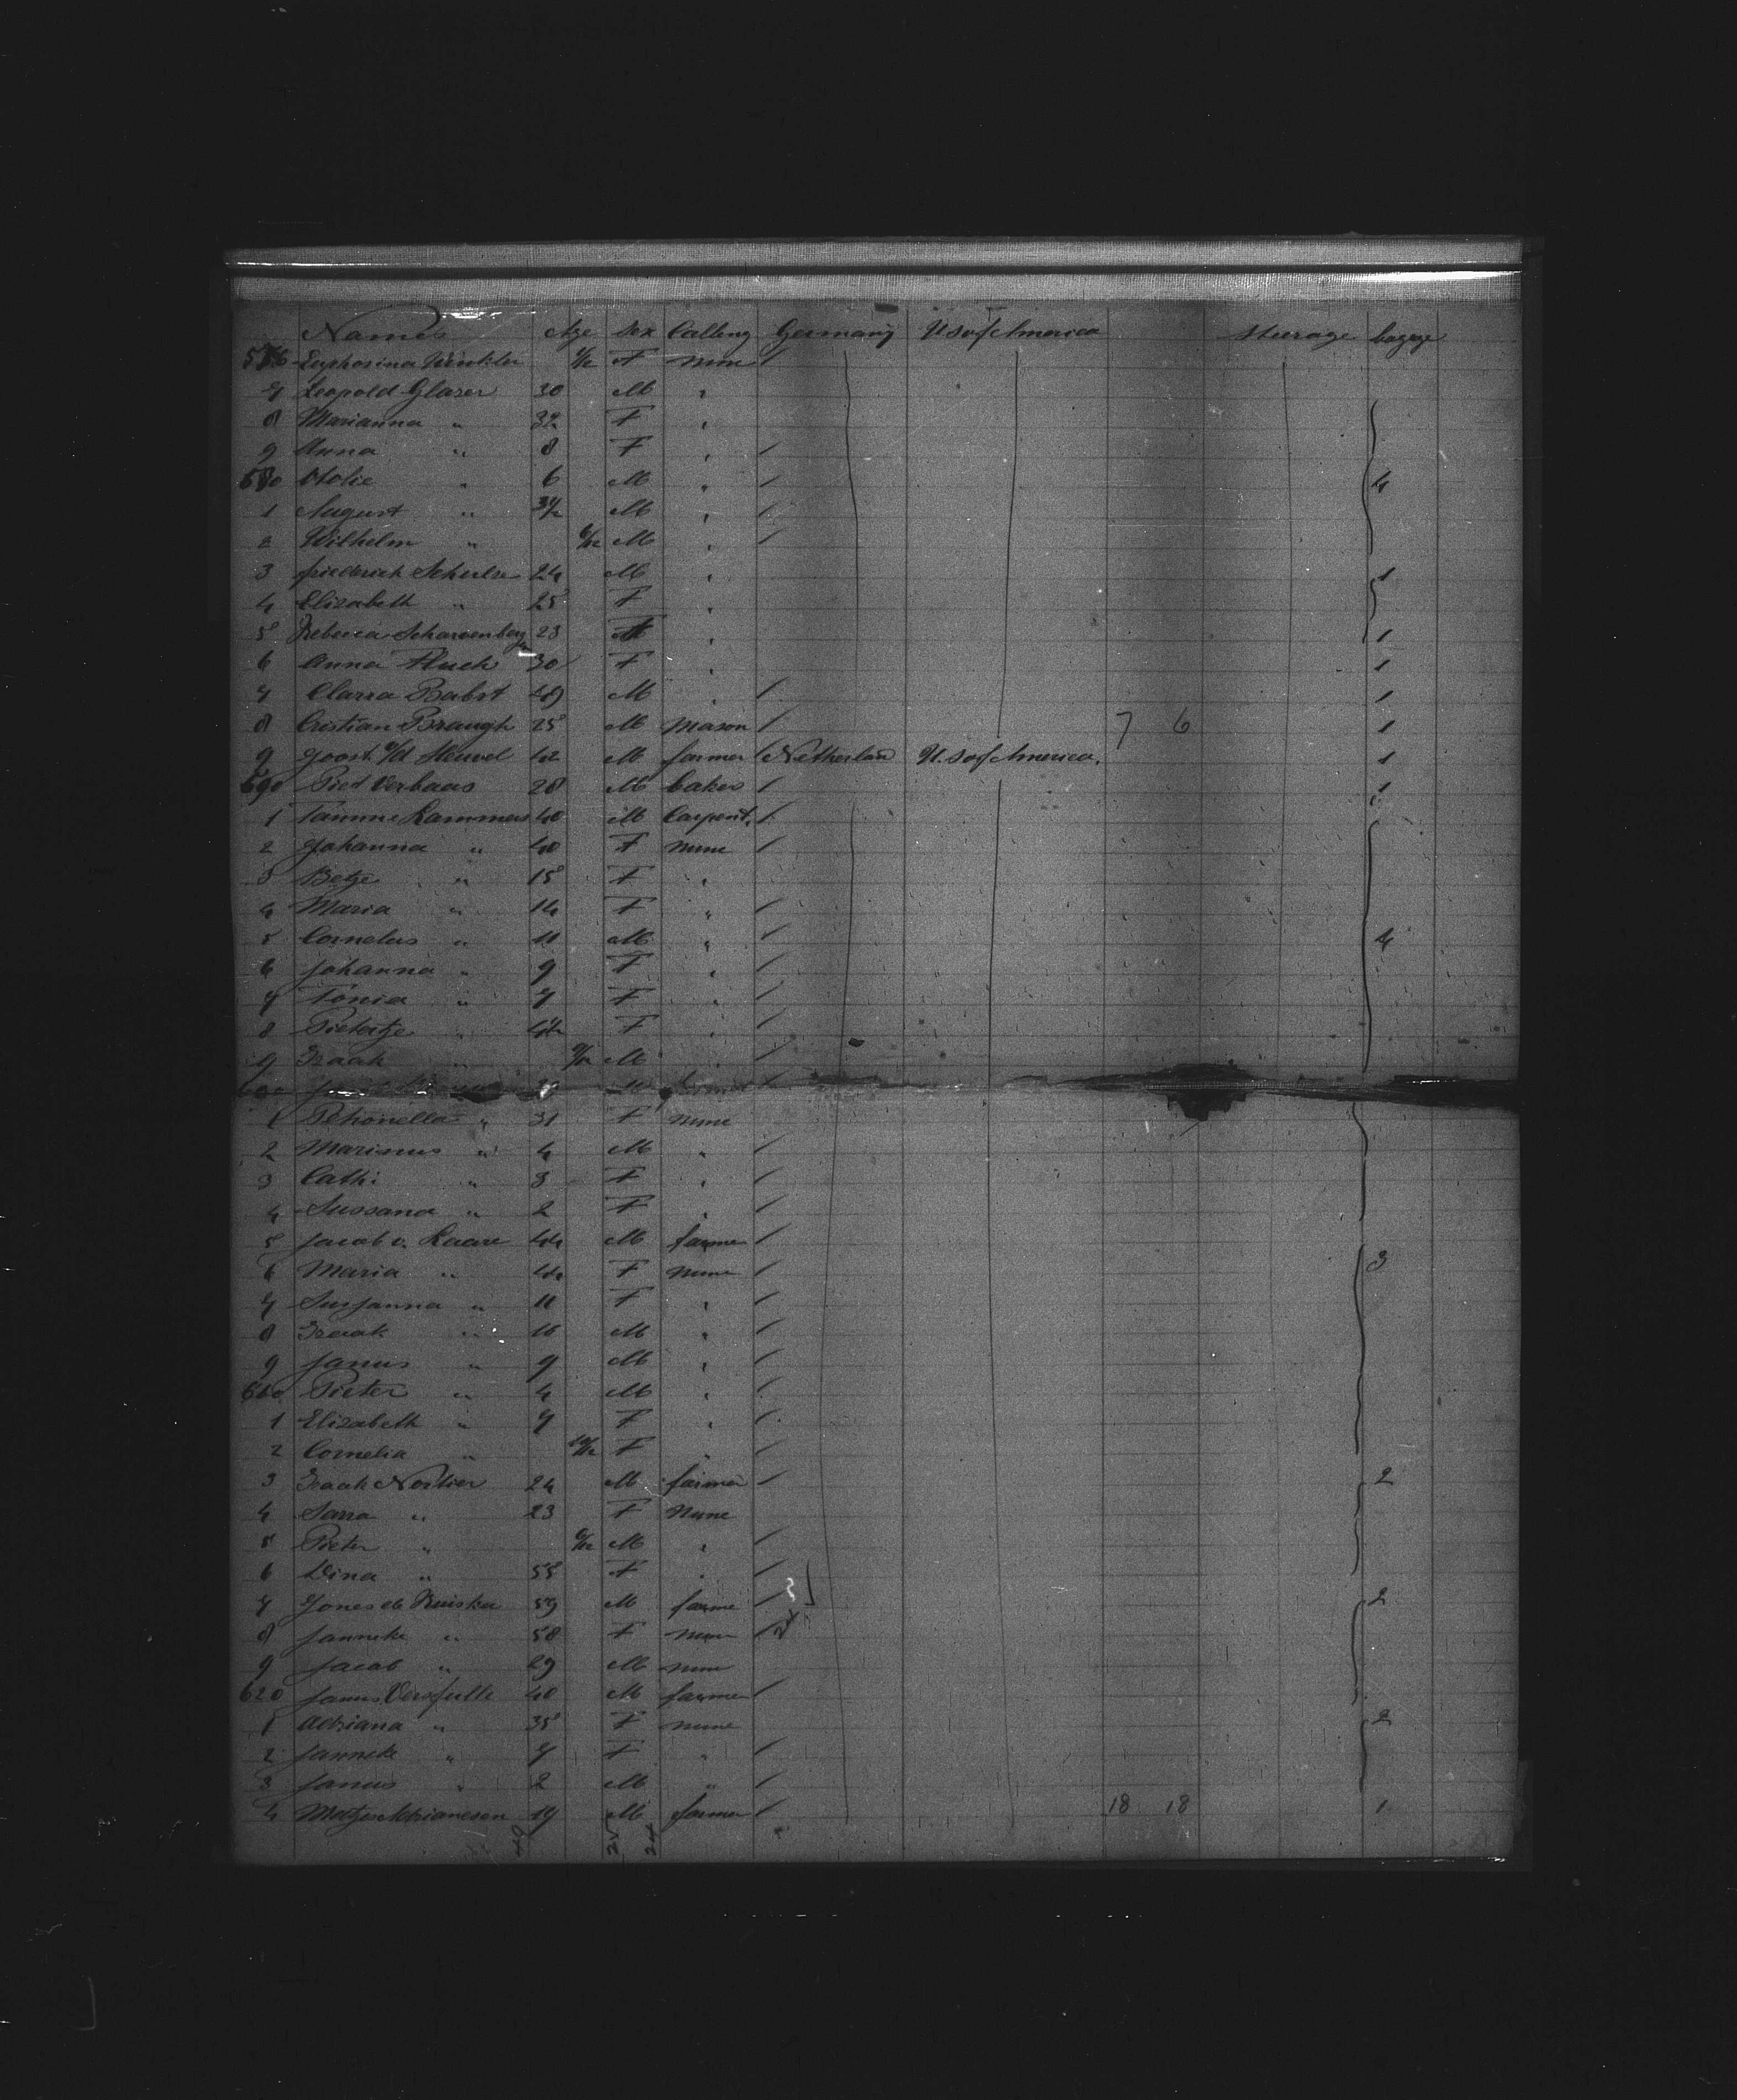 Names Age Sex Calling Germany U S of America Steerage bagage
576 Euphosina Winkler /12 F none
7 Leopold Glaser 30 M "
8 Marianna " 32 F "
9 Anna " 8 F "
580 Otolie " 6 M " 4
1 August " 3½ M "
2 Wilhelm " 6/12 M "
3 friederich Schulze 24 M " 1
4 Elizabeth " 25 F "
5 Rebecca Scharenberg 23 " 1
6 Anna Pluch 30 F " 1
7 Clarra Babst 49 M " 1
8 Cristian Braugh 25 M Mason 7 6 1
9 Joost v/d Heuvel 42 M farmer Netherland U. S of America. 1
590 Piet Verbaas 28 M baker 1
1 Tamme Lammers 40 M Carpent.
2 Johanna " 40 F none
3 Betje " 15 F "
4 Maria " 14 F "
5 Cornelus " 11 M " 4
6 Johanna " 9 F "
7 Tonia " 7 F "
8 Pietertje " 4½ F "
9 Izaak " 9/12 M "
600 M
1 Petronella " 31 F none
2 Marinus " 4 M "
3 Cathi " 3 F "
4 Sussana " 2 F "
5 Jacob v. Laare 44 M farmer
6 Maria " F none 3
7 Susanna " 11 F "
8 Izaak " 10 M "
9 Janus " 9 M "
610 Pieter " 4 M "
1 Elizabeth " 7 F "
2 Cornelia " 10/12 F "
3 Izaak Nortier 24 M farmer 2
4 Sarra " 23 F None
5 Pieter " 6/12 M "
6 Dina " 55 F "
7 Jones de Kuiska 59 M farme 2
8 Janneke " 58 F none
9 Jacob " 29 M none
620 Janus Versfulte 40 M farmer
1 Adriana " 35 F none 2
2 Janneke " 7 F "
3 Janus " 2 M "
4 Matje Adrianesen 19 M farmer 18 18 1
49 25 24